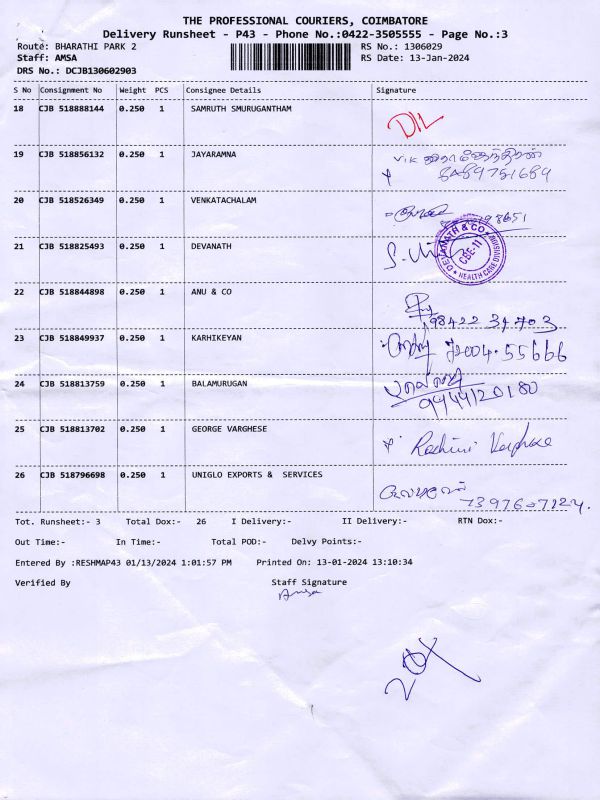 THE PROFESSIONAL COURIERS, COIMBATORE
Delivery Runsheet - P43 - Phone No.:0422-3505555 - Page No.:3
Route: BHARATHI PARK 2 RS No.: 1306029
Staff: AMSA RS Date: 13-Jan-2024
DRS No.: DCJB130602903
S No Consignment No Weight PCS Consignee Details Signature
18 CJB 518888144 0.250 1 SAMRUTH SMURUGANTHAM
D/L
19 CJB 518856132 0.250 1 JAYARAMNA
8489751689
20 CJB 518526349 0.250 1 VENKATACHALAM
98651
21 CJB 518825493 0.250 1 DEVANATH
DEVANATH & CO
CBE-11
HEALTH CARE DIVISION
22 CJB 518844898 0.250 1 ANU & CO
98422 31703
23 CJB 518849937 0.250 1 KARHIKEYAN
72004.55666
24 CJB 518813759 0.250 1 BALAMURUGAN
9444120180
25 CJB 518813702 0.250 1 GEORGE VARGHESE
Roshini Varghese
26 CJB 518796698 0.250 1 UNIGLO EXPORTS & SERVICES
7397607124.
Tot. Runsheet:- 3 Total Dox:- 26 I Delivery:- II Delivery:- RTN Dox:-
Out Time:- In Time:- Total POD:- Delvy Points:-
Entered By :RESHMAP43 01/13/2024 1:01:57 PM Printed On: 13-01-2024 13:10:34
Verified By Staff Signature
Amsa